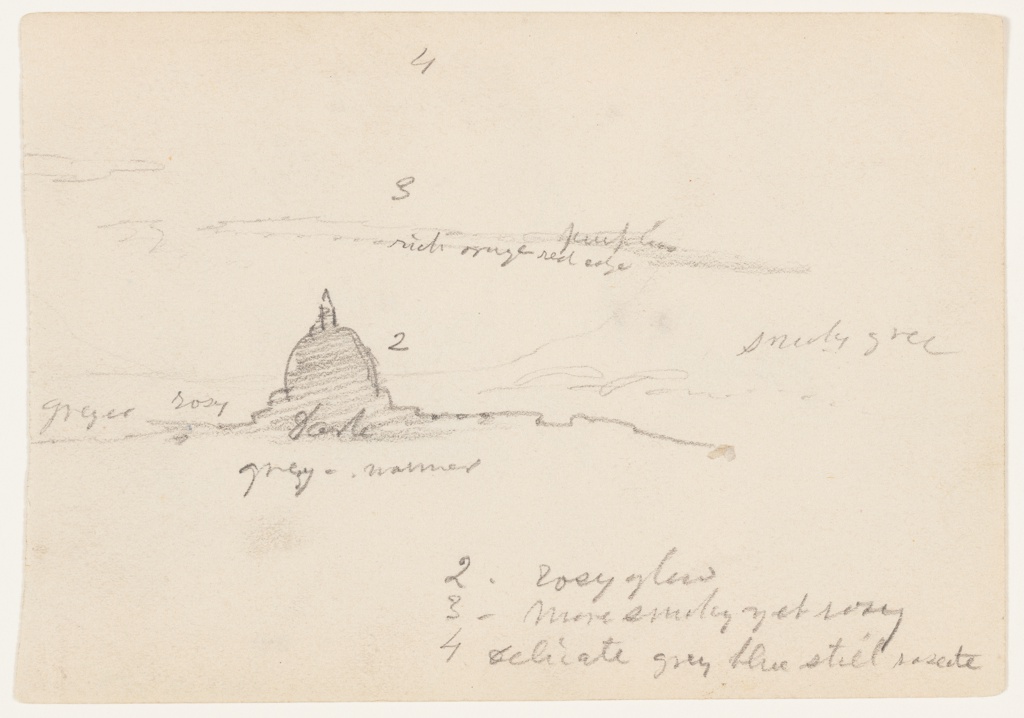 4
3
rich orange red edge
2
smoky grey
rosy
Dark
grey - warmer
2. rosy glow
3 - more smoky yet rosy
4 delicate grey blue still roseate